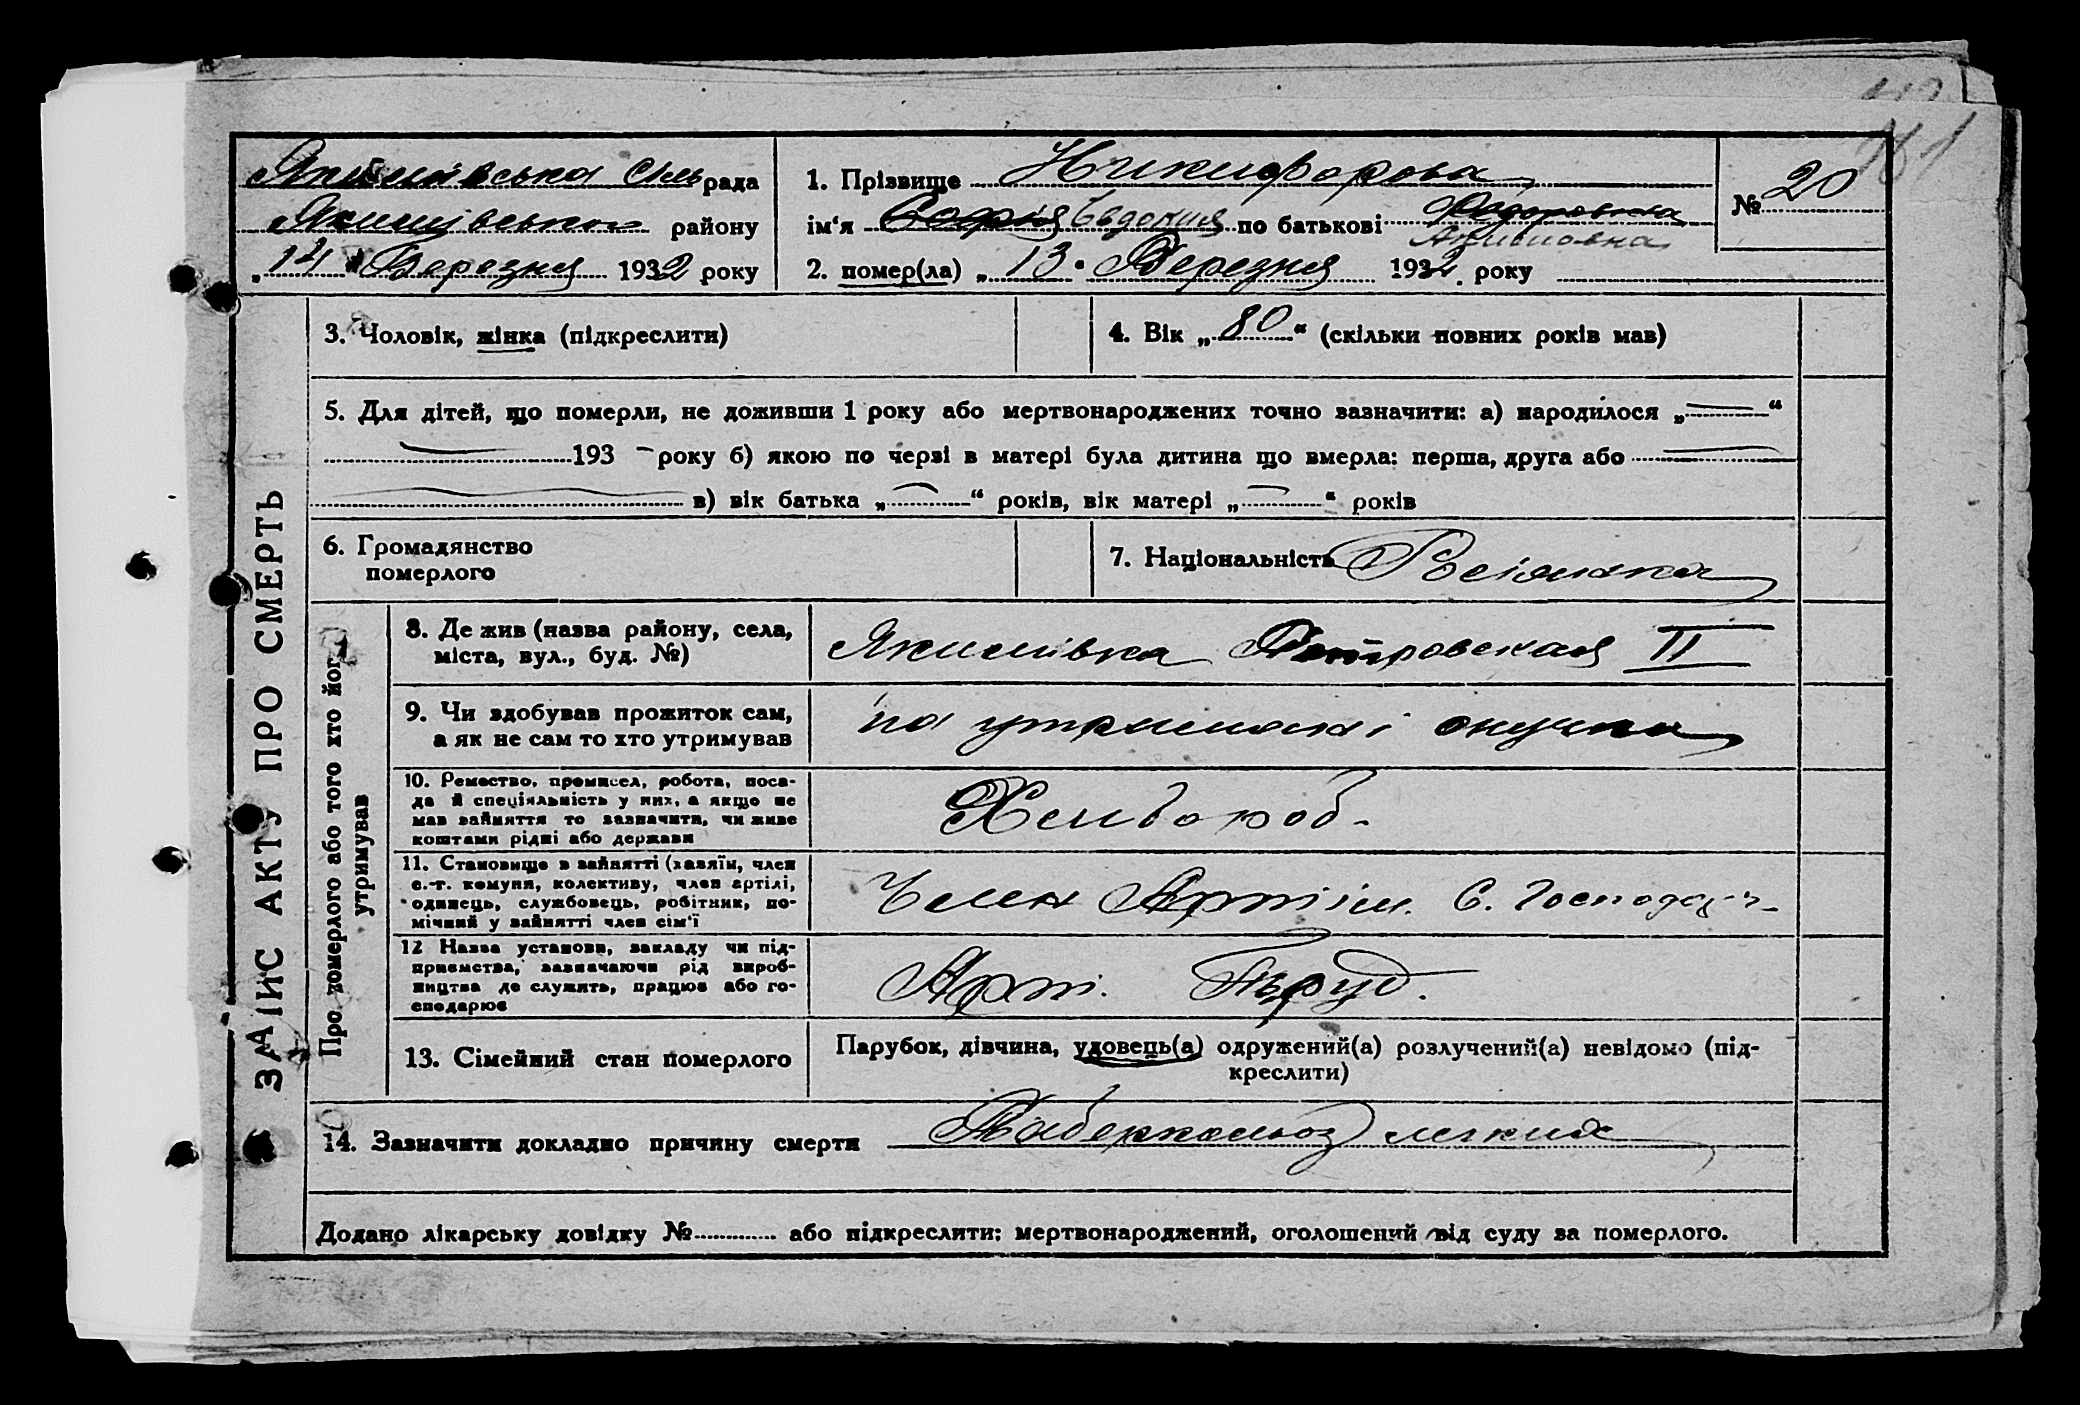 181
Якимівська Сільрада
Якимівського району
„14" Березня 1932 року
1. Прізвище Никифорова
ім'я Софія Євдокия по батькові Федоровна
Акимовна
2. помер(ла) „13" Березня 1932 року
№ 20
ЗАПИС АКТУ ПРО СМЕРТЬ
3. Чоловік, жінка (підкреслити)
4. Вік „80" (скільки повних років мав)
5. Для дітей, що померли, не доживши 1 року або мертвонароджених точно зазначити: а) народилося „—"
— 193 — року б) якою по черзі в матері була дитина що вмерла: перша, друга або —
— в) вік батька „—" років, вік матері „—" років
6. Громадянство
померлого
7. Національність Росіянка
Про померлого або того хто його
утримував
8. Де жив (назва району, села,
міста, вул., буд. №)
Якимівка Петровская II
9. Чи здобував прожиток сам,
а як не сам то хто утримував
на утриманні онука
10. Ремество, промисел, робота, поса-
да й спеціяльність у них, а якщо не
мав заняття то зазначити, чи живе
коштами рідні або держави
Хлібороб.
11. Становище в занятті (хазяїн, член
с.-г. комуни, колективу, член артілі,
одинець, службовець, робітник, по-
мічний у занятті член сім'ї
Член Артіли С. Господар
12 Назва установи, закладу чи під-
приємства, зазначаючи рід вироб-
ництва де служить, працює або го-
сподарює
Арт. Труд.
13. Сімейний стан померлого
Парубок, дівчина, удовець(а) одружений(а) розлучений(а) невідомо (під-
креслити)
14. Зазначити докладно причину смерти Туберкольоз легких
Додано лікарську довідку № або підкреслити: мертвонароджений, оголошений від суду за померлого.